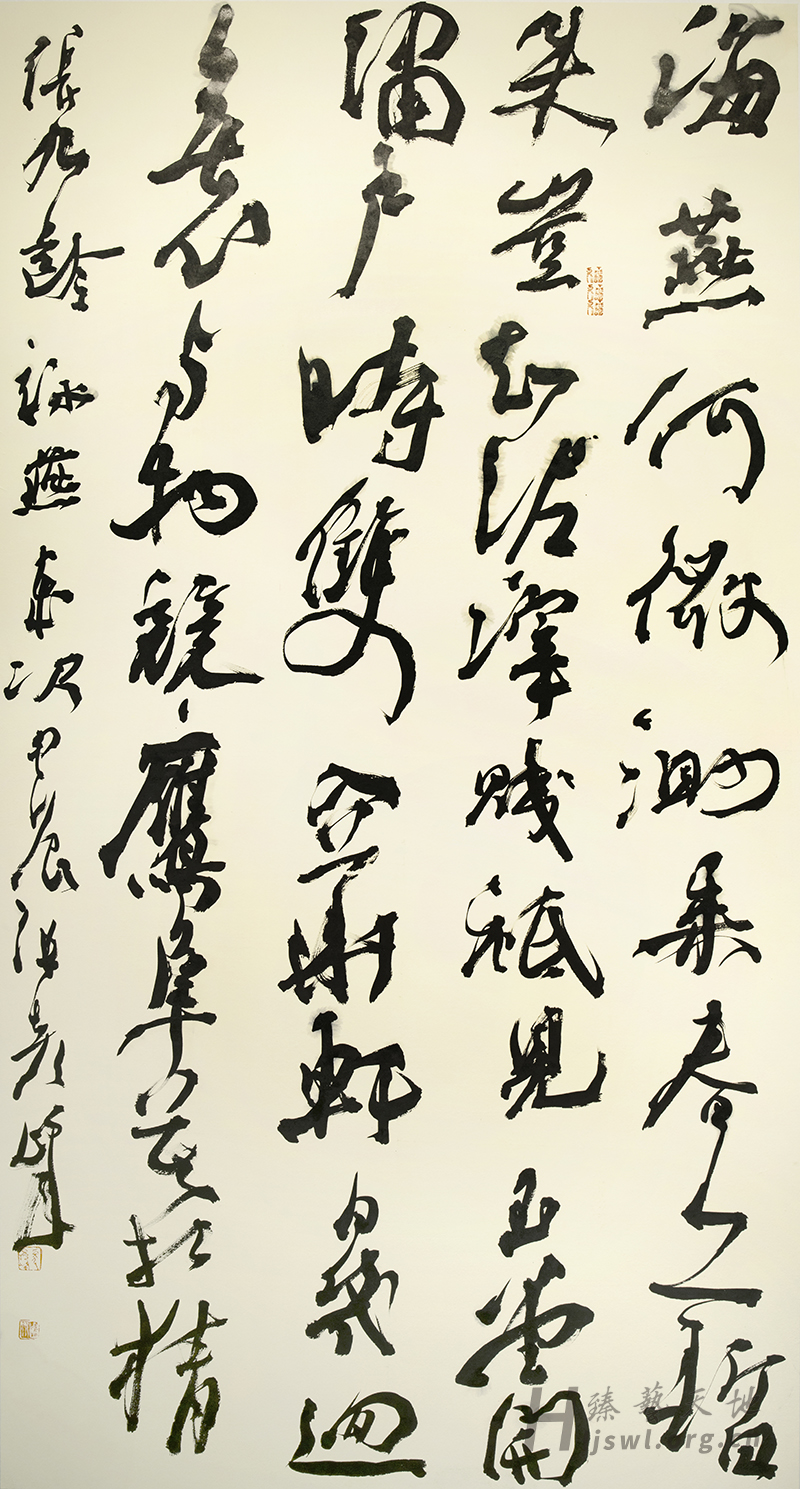 海燕何微渺乘春亦暫
來豈知泥滓賤祗見玉堂開
繡戶時雙入華軒日幾迴
無心與物競鷹隼莫相猜
張九齡詠燕歲次甲辰
臻藝天地
jswl.org.cn